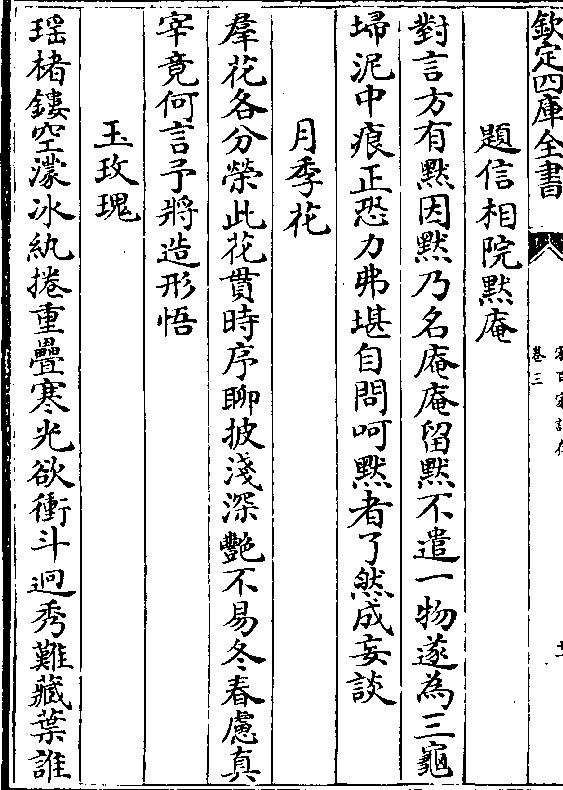 欽定四庫全書
卷三
題信相院默庵
對言方有默因默乃名庵庵留默不遣一物遂為三龜
埽泥中痕正恐力弗堪自問呵默者了然成妄談
月季花
羣花各分榮此花貫時序聊披淺深艷不易冬春慮真
宰竟何言予將造形悟
玉玫瑰
瑶楮鏤空濛冰紈捲重疊寒光欲衝斗迥秀難藏葉誰